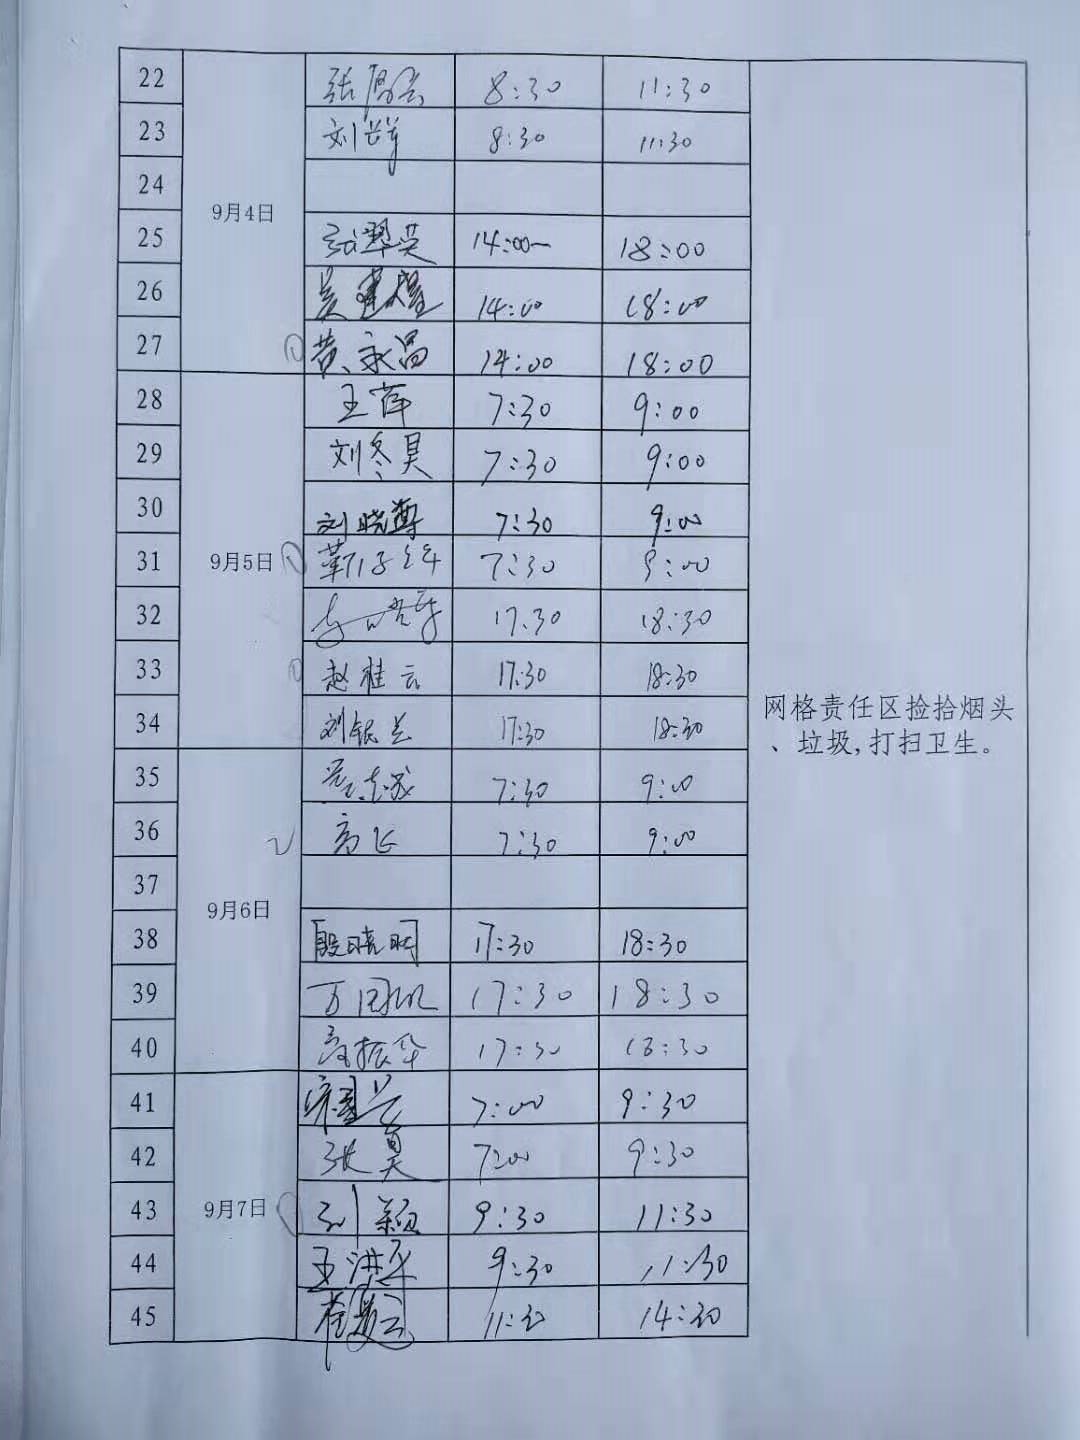 22 8:30 11:30
23 8:30 11:30
24
9月4日
25 张翠英 14:00 18:00
26 14:00 18:00
27 黄永昌 14:00 18:00
28 王萍 7:30 9:00
29 刘冬昊 7:30 9:00
30 刘晓尊 7:30 9:00
31 9月5日 7:30 9:00
32 17:30 18:30
33 赵桂云 17:30 18:30
34 刘银兰 17:30 18:30
网格责任区捡拾烟头
、垃圾,打扫卫生。
35 7:30 9:00
36 高飞 7:30 9:00
37
9月6日
38 殷晓明 17:30 18:30
39 17:30 18:30
40 高振华 17:30 18:30
41 7:00 9:30
42 张昊 7:00 9:30
43 9月7日 刘颖 9:30 11:30
44 王洪平 9:30 11:30
45 11:30 14:30